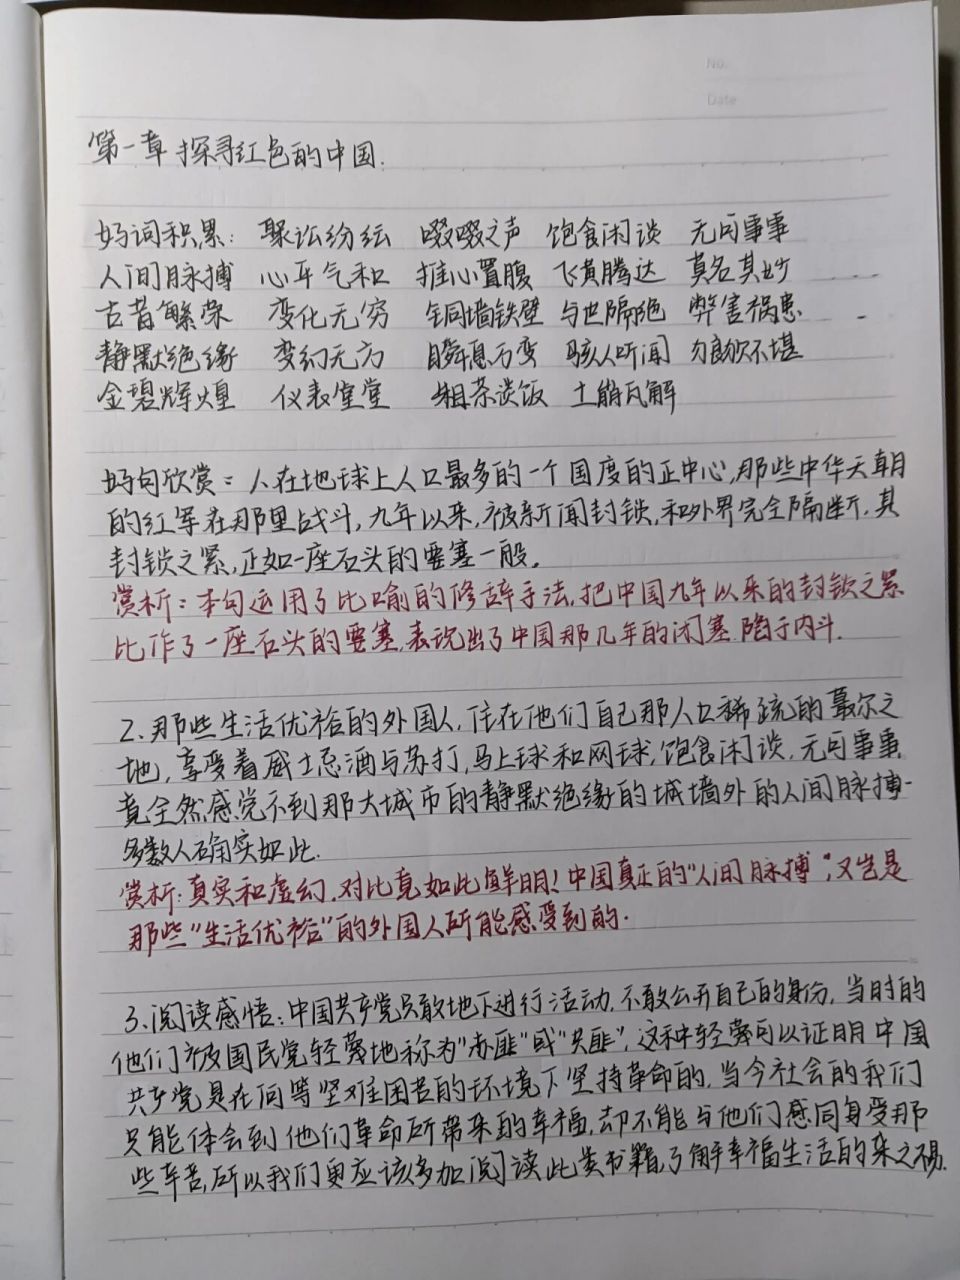 No.
Date
第一章 探寻红色的中国.
好词积累: 聚讼纷纭 啜啜之声 饱食闲谈 无可事事
人间脉搏 心平气和 推心置腹 飞黄腾达 莫名其妙
古昔繁荣 变化无穷 铜墙铁壁 与世隔绝 弊害祸患
静默绝缘 变幻无方 瞬息万变 骇人听闻 勿良饮不堪
金碧辉煌 仪表堂堂 粗茶淡饭 土崩瓦解
好句欣赏: 人在地球上人口最多的一个国度的正中心,那些中华天朝
的红军在那里战斗,九年以来,被新闻封锁,和外界完全隔断,其
封锁之紧,正如一座石头的要塞一般。
赏析:本句运用了比喻的修辞手法,把中国九年以来的封锁之紧
比作了一座石头的要塞,表现出了中国那几年的闭塞,陷于内斗.
2、那些生活优裕的外国人,住在他们自己那人口稀疏的蕞尔之
地,享受着威士忌酒与苏打,马上球和网球,饱食闲谈,无可事事,
竟全然感觉不到那大城市的静默绝缘的城墙外的人间脉搏-
多数人确实如此.
赏析:真实和虚幻,对比竟如此鲜明!中国真正的"人间脉搏",又岂是
那些"生活优裕"的外国人所能感受到的.
3、阅读感悟:中国共产党只敢地下进行活动,不敢公开自己的身份,当时的
他们被国民党轻蔑地称为"赤匪"或"共匪",这种轻蔑可以证明中国
共产党是在何等坚难困苦的环境下坚持革命的,当今社会的我们
只能体会到他们革命所带来的幸福,却不能与他们感同身受那
些辛苦,所以我们更应该多加阅读此类书籍,了解幸福生活的来之不易.